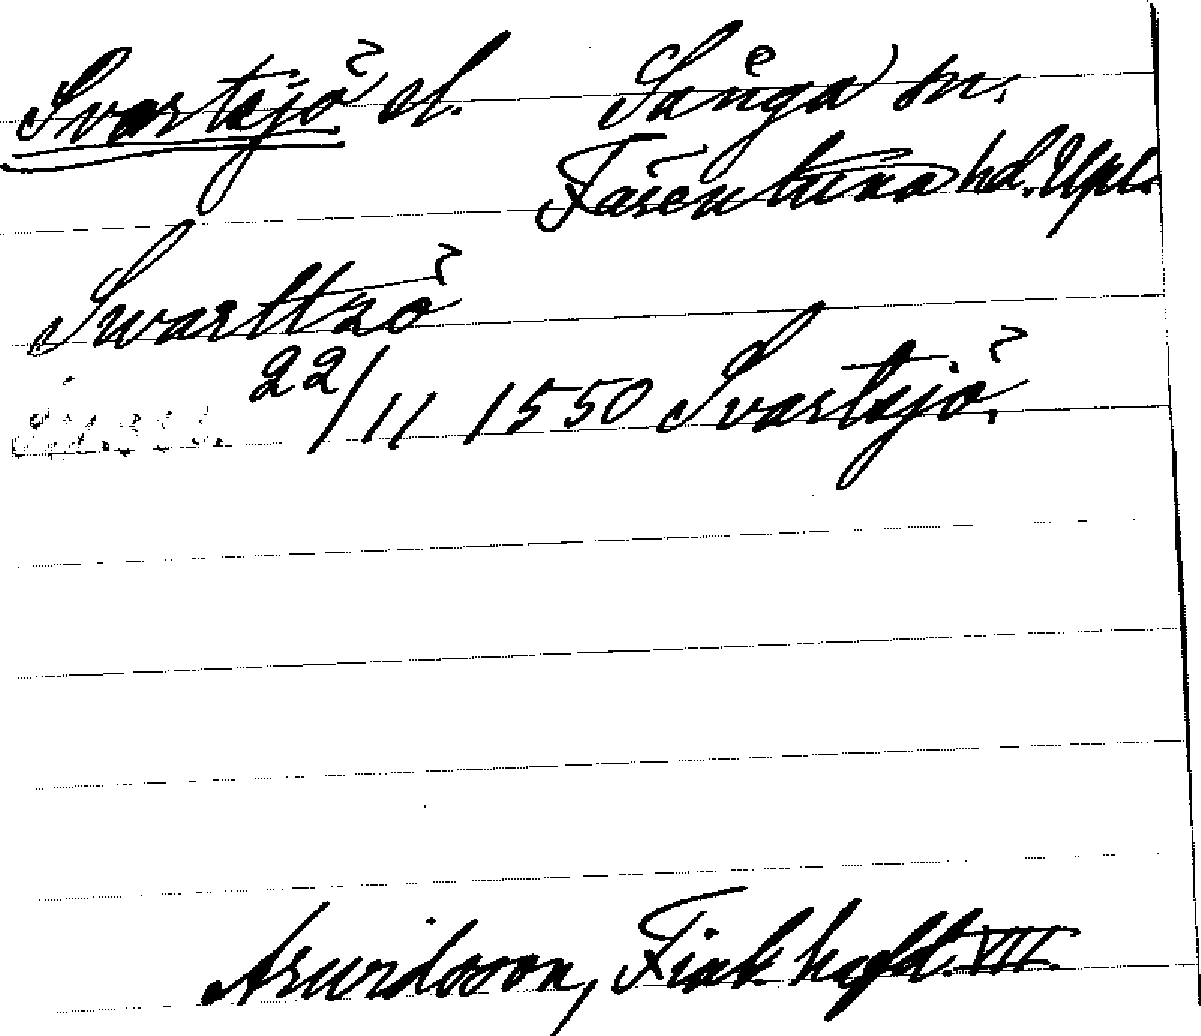 Svartsjö sl. Sånga sn.
Färentuna hd. Upl.
Swarttzö
22/11 1550 Svartsjö.
Arwidsson, Finl. hgfd. VII.